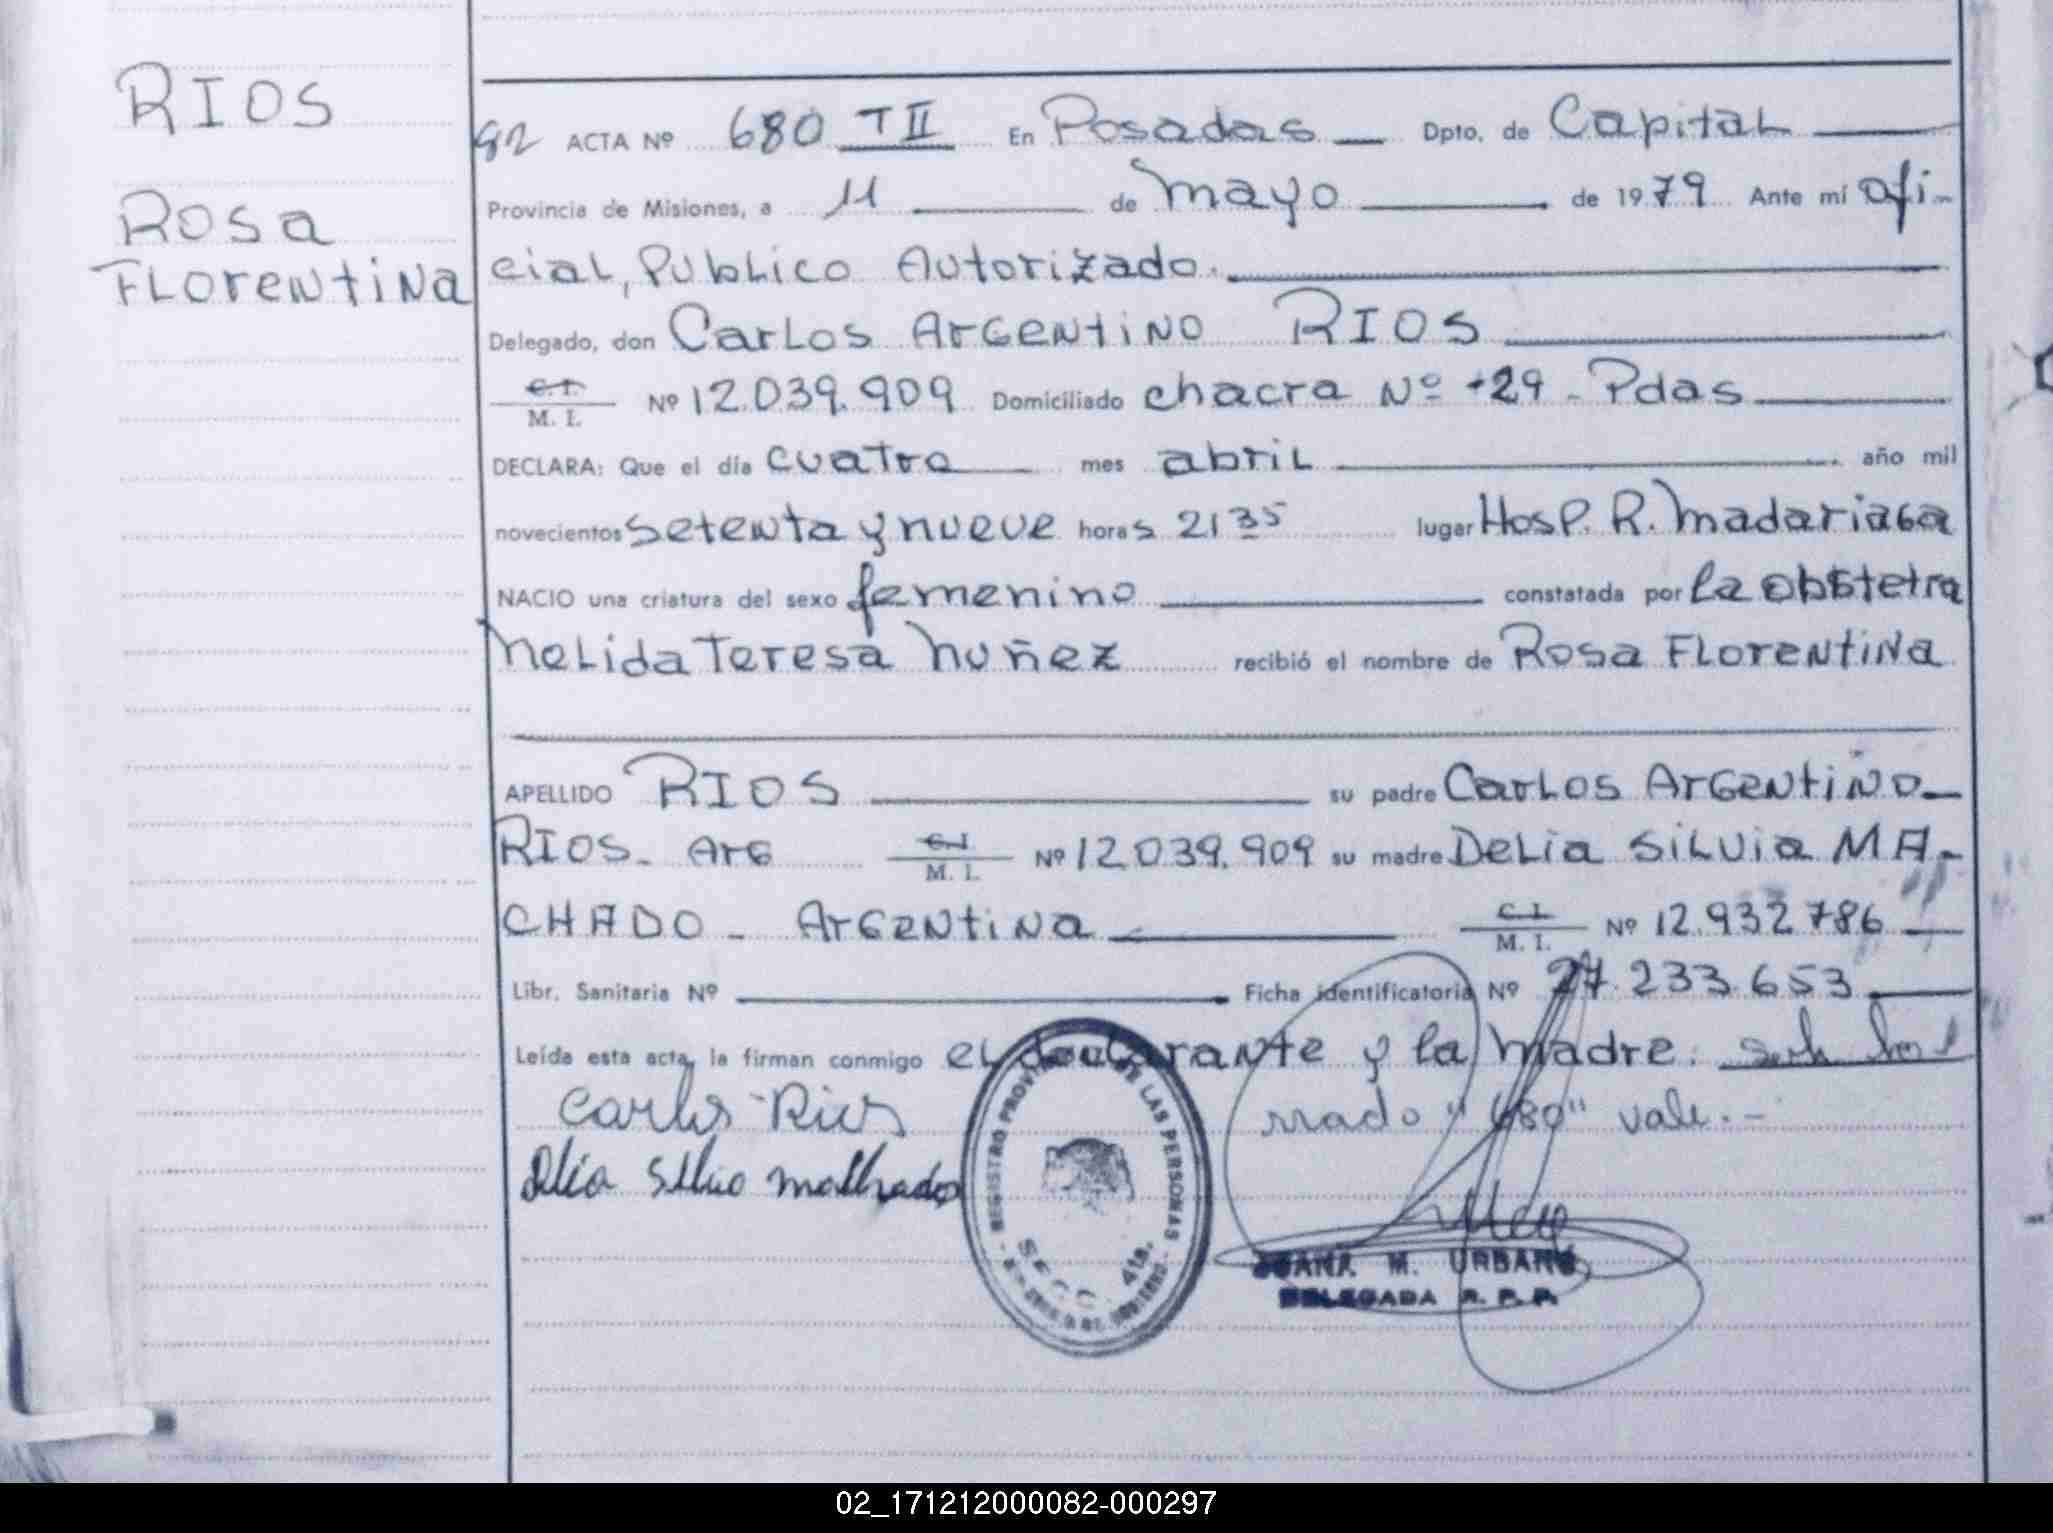 RIOS
Rosa
Florentina
92 ACTA Nº 680 T II En Posadas Dpto. de Capital
Provincia de Misiones, a 11 de mayo de 1979 Ante mí ofi-
cial, Publico Autorizado.
Delegado, don Carlos Argentino RIOS
C.I. / M. I. Nº 12.039.909 Domiciliado chacra Nº 29 - Pdas
DECLARA: Que el día cuatro mes abril año mil
novecientos setenta y nueve horas 21 35 lugar Hosp. R. Madariaga
NACIO una criatura del sexo femenino constatada por la obstetra
Nelida Teresa Nuñez recibió el nombre de Rosa Florentina
APELLIDO RIOS su padre Carlos Argentino
RIOS - Arg C.I. / M. I. Nº 12.039.909 su madre Delia Silvia MA-
CHADO - Argentina C.I. / M. I. Nº 12.932.786
Libr. Sanitaria Nº Ficha identificatoria Nº 27.233.653
Leída esta acta, la firman conmigo el declarante y la madre.
Carlos Rios rrado "680" vale.-
Delia Silvia
REGISTRO PROVINCIAL DE LAS PERSONAS
SECC. 4ta.
JUANA M. URBANO
DELEGADA R. P. P.
02_171212000082-000297